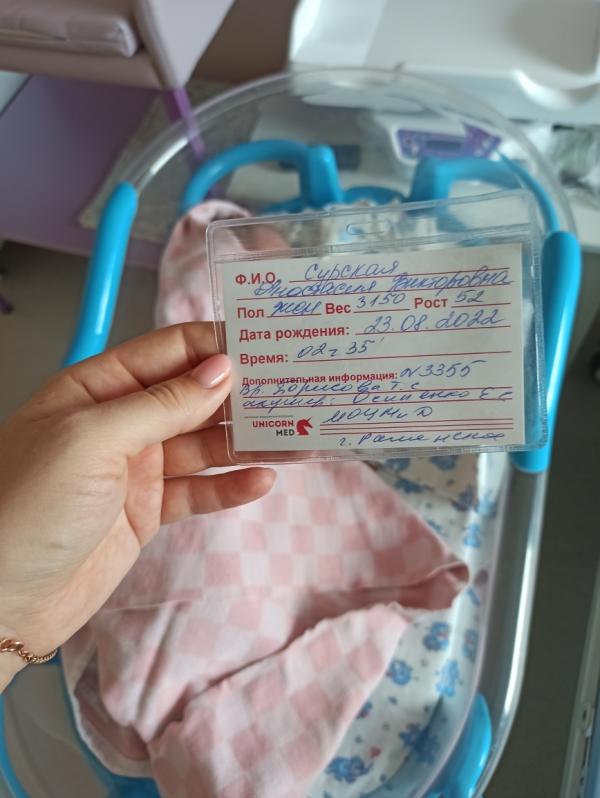 Ф.И.О. Сурская
Анастасия Викторовна
Пол жен Вес 3150 Рост 52
Дата рождения: 23.08.2022
Время: 02ч 35'
Дополнительная информация: N3355
Вр. Борисова Т.С
акушер: Осипенко Е С
UNICORN МОЦМиД
MED г. Раменское